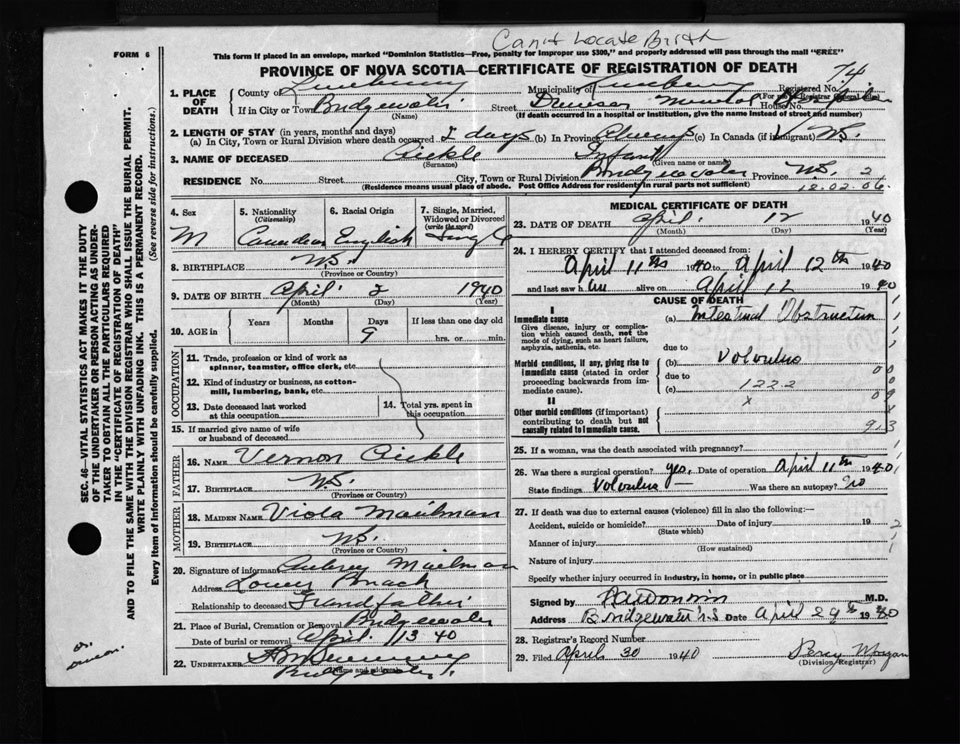 Can't Locate Birth
FORM 6
This form if placed in an envelope, marked "Dominion Statistics—Free, penalty for improper use $300," and properly addressed will pass through the mail "FREE"
PROVINCE OF NOVA SCOTIA—CERTIFICATE OF REGISTRATION OF DEATH
74
1. PLACE OF DEATH
County of Lunenburg
Municipality of Lunenburg
Registered No.
(For use of Registrar
If in City or Town Bridgewater
(Name)
Street Dawson Memorial Hospital House No.
(If death occurred in a hospital or institution, give the name instead of street and number)
2. LENGTH OF STAY (in years, months and days)
(a) In City, Town or Rural Division where death occurred 2 days (b) In Province Always (c) In Canada (if immigrant) N.S.
3. NAME OF DECEASED Aickle Infant
(Surname) (Given name or names)
RESIDENCE No. Street City, Town or Rural Division Bridgewater Province N.S. 2
(Residence means usual place of abode. Post Office Address for residents in rural parts not sufficient) 12.02.06.
4. Sex
M
5. Nationality
(Citizenship)
Canadian
6. Racial Origin
English
7. Single, Married, Widowed or Divorced
(write the word)
Single
8. BIRTHPLACE N.S.
(Province or Country)
9. DATE OF BIRTH April 2 1940
(Month) (Day) (Year)
10. AGE in
Years Months Days If less than one day old
9 hrs. or min.
OCCUPATION
11. Trade, profession or kind of work as spinner, teamster, office clerk, etc.
12. Kind of industry or business, as cotton-mill, lumbering, bank, etc.
13. Date deceased last worked at this occupation
14. Total yrs. spent in this occupation
15. If married give name of wife or husband of deceased
FATHER
16. NAME Vernon Aickle
17. BIRTHPLACE N.S.
(Province or Country)
MOTHER
18. MAIDEN NAME Viola Mailman
19. BIRTHPLACE N.S.
(Province or Country)
20. Signature of informant Aubrey Mailman
Address Lower Branch
Relationship to deceased Grandfather
21. Place of Burial, Cremation or Removal Bridgewater
Date of burial or removal April 13 40
22. UNDERTAKER
Bridgewater
Name and address
MEDICAL CERTIFICATE OF DEATH
23. DATE OF DEATH April 12 1940
(Month) (Day) (Year)
24. I HEREBY CERTIFY that I attended deceased from:
April 11th 1940 to April 12th 1940
and last saw h im alive on April 12 1940
CAUSE OF DEATH
I
Immediate cause
Give disease, injury or complication which caused death, not the mode of dying, such as heart failure, asphyxia, asthenia, etc.
(a) Intestinal Obstruction
due to
Morbid conditions, if any, giving rise to immediate cause (stated in order proceeding backwards from immediate cause).
(b) Volvulus
due to
(c) 122.2
x
II
Other morbid conditions (if important) contributing to death but not causally related to immediate cause.
25. If a woman, was the death associated with pregnancy?
26. Was there a surgical operation? Yes, Date of operation April 11th 1940
State findings Volvulus — Was there an autopsy? No
27. If death was due to external causes (violence) fill in also the following:—
Accident, suicide or homicide? Date of injury 19
(State which)
Manner of injury
(How sustained)
Nature of injury
Specify whether injury occurred in industry, in home, or in public place
Signed by M.D.
Address Bridgewater N.S Date April 29th 1940
28. Registrar's Record Number
29. Filed April 30 1940 Percy Morgan
(Division Registrar)
SEC. 46—VITAL STATISTICS ACT MAKES IT THE DUTY
OF THE UNDERTAKER OR PERSON ACTING AS UNDER-
TAKER TO OBTAIN ALL THE PARTICULARS REQUIRED
IN THE "CERTIFICATE OF REGISTRATION OF DEATH" AND
TO FILE THE SAME WITH THE DIVISION REGISTRAR WHO SHALL ISSUE THE BURIAL PERMIT.
WRITE PLAINLY WITH UNFADING INK. THIS IS A PERMANENT RECORD.
Every item of information should be carefully supplied. (See reverse side for instructions.)